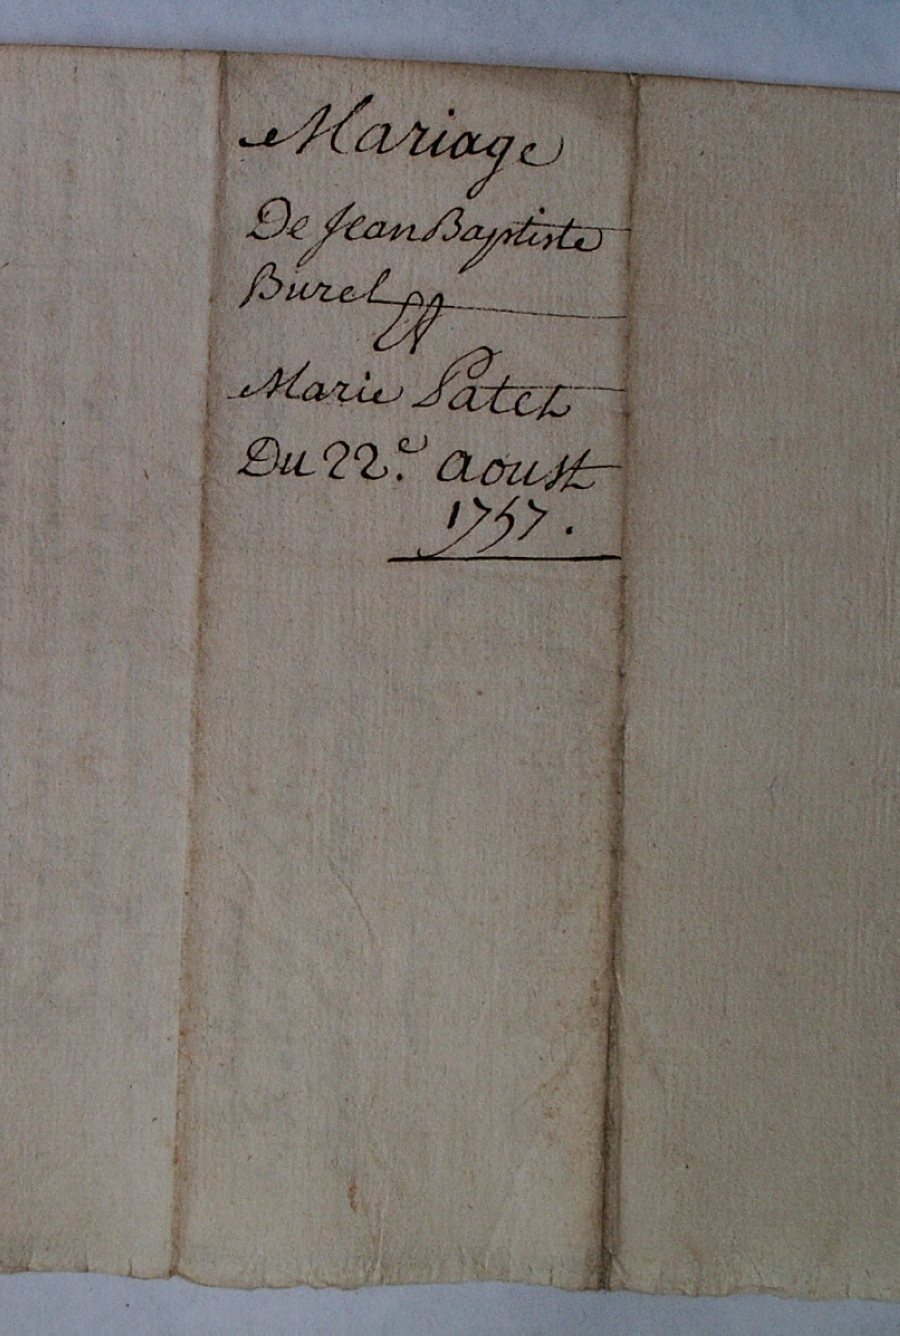 Mariage
De Jean Baptiste
Burel
Et
Marie Patet
Du 22.e Aoust
1757.